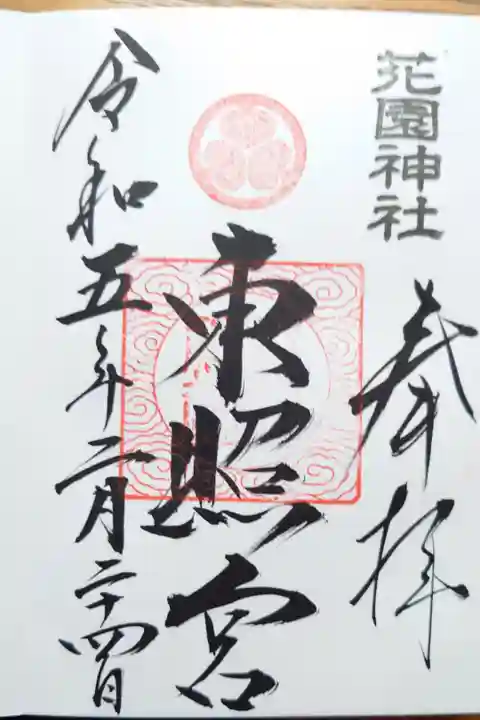 花園神社
奉拝
東照宮
令和五年二月二十四日